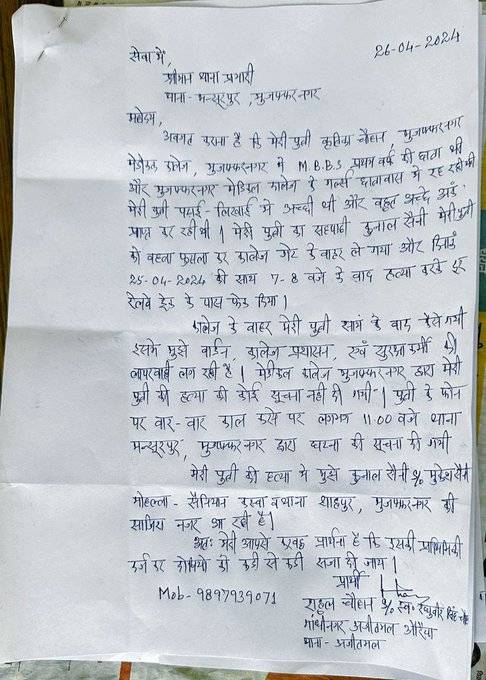 26-04-2024
सेवा में,
श्रीमान थाना प्रभारी
थाना - मन्सूरपुर, मुजफ्फरनगर
महोदय,
अवगत कराना है कि मेरी पुत्री कृतिका चौहान, मुजफ्फरनगर
मेडीकल कालेज, मुजफ्फरनगर में M.B.B.S प्रथम वर्ष की छात्रा थी
और मुजफ्फरनगर मेडिकल कालेज के गर्ल्स छात्रावास में रह रही थी
मेरी पुत्री पढाई - लिखाई में अच्छी थी और बहुत अच्छे अंक
प्राप्त कर रही थी। मेरी पुत्री का सहपाठी कुनाल सैनी मेरी पुत्री
को बहला फुसला कर कालेज गेट के बाहर ले गया और दिनांक
25-04-2024 की साय 7-8 बजे के बाद हत्या करके दूर
रेलवे ट्रेक के पास फेक दिया।
कालेज के बाहर मेरी पुत्री सायं के बाद कैसे गयी
इसमे मुझे वार्डन, कालेज प्रशासन, एवं सुरक्षा कर्मी की
लापरवाही लग रही है। मेडीकल कालेज मुजफ्फरनगर द्वारा मेरी
पुत्री की हत्या की कोई सूचना नही दी गयी। पुत्री के फोन
पर बार-बार काल करने पर लगभग 11:00 बजे थाना
मन्सूरपुर, मुजफ्फरनगर द्वारा घटना की सूचना दी गयी
मेरी पुत्री की हत्या में मुझे कुनाल सैनी S/o मुकेश सैनी
मोहल्ला - सैनियान कस्बा व थाना शाहपुर, मुजफ्फरनगर की
साजिश नजर आ रही है।
अतः मेरी आपसे करबद्ध प्रार्थना है कि इसकी प्राथमिकी
दर्ज कर दोषियो को कडी से कडी सजा दी जाय।
प्रार्थी
Mob - 9897939071
राहुल चौहान S/o स्व० रघुवीर सिंह
गांधीनगर अजीतमल औरैया
थाना - अजीतमल